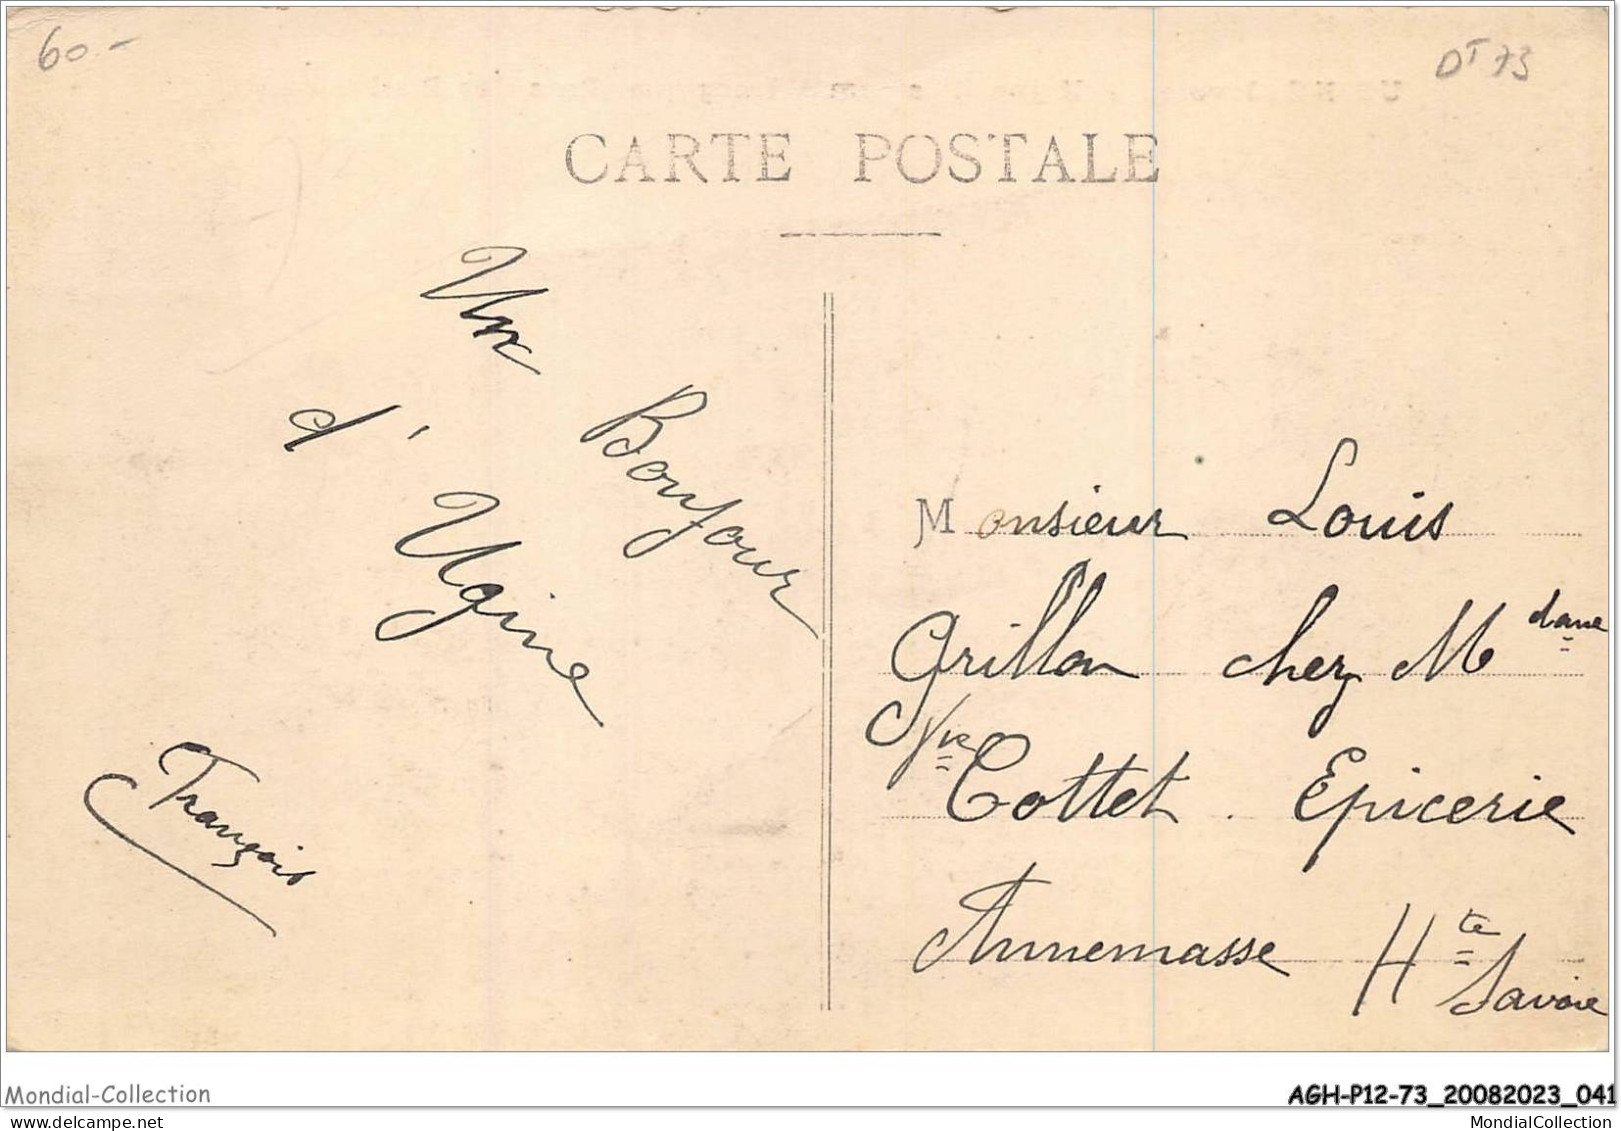 60.-
DT 73
CARTE POSTALE
Un Bonjour
d'Ugine
François
Monsieur Louis
Grillon chez Mdame
Vve Cottet . Epicerie
Annemasse Hte Savoie
Mondial-Collection
AGH-P12-73_20082023_041
MondialCollection
MondialCollection